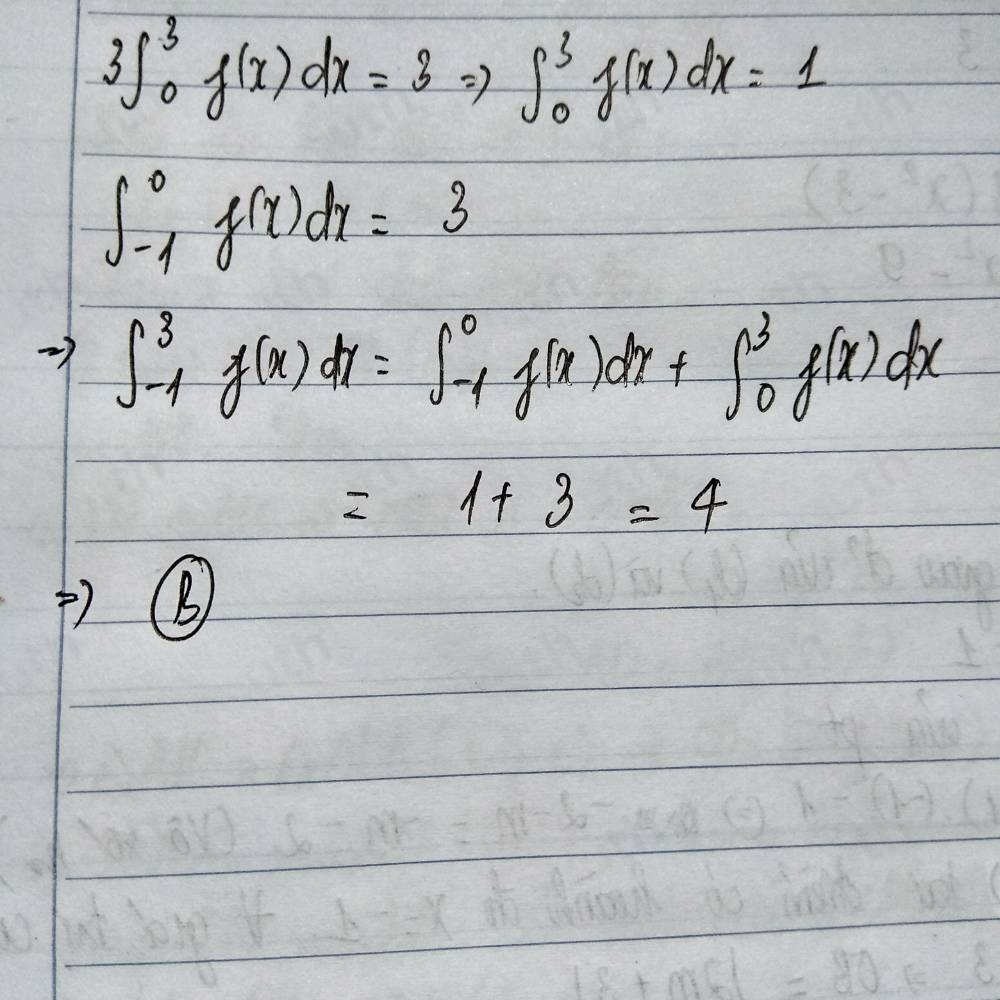 3∫₀³ f(x) dx = 3 => ∫₀³ f(x) dx = 1
∫₋₁⁰ f(x) dx = 3
=> ∫₋₁³ f(x) dx = ∫₋₁⁰ f(x) dx + ∫₀³ f(x) dx
= 1 + 3 = 4
=> B